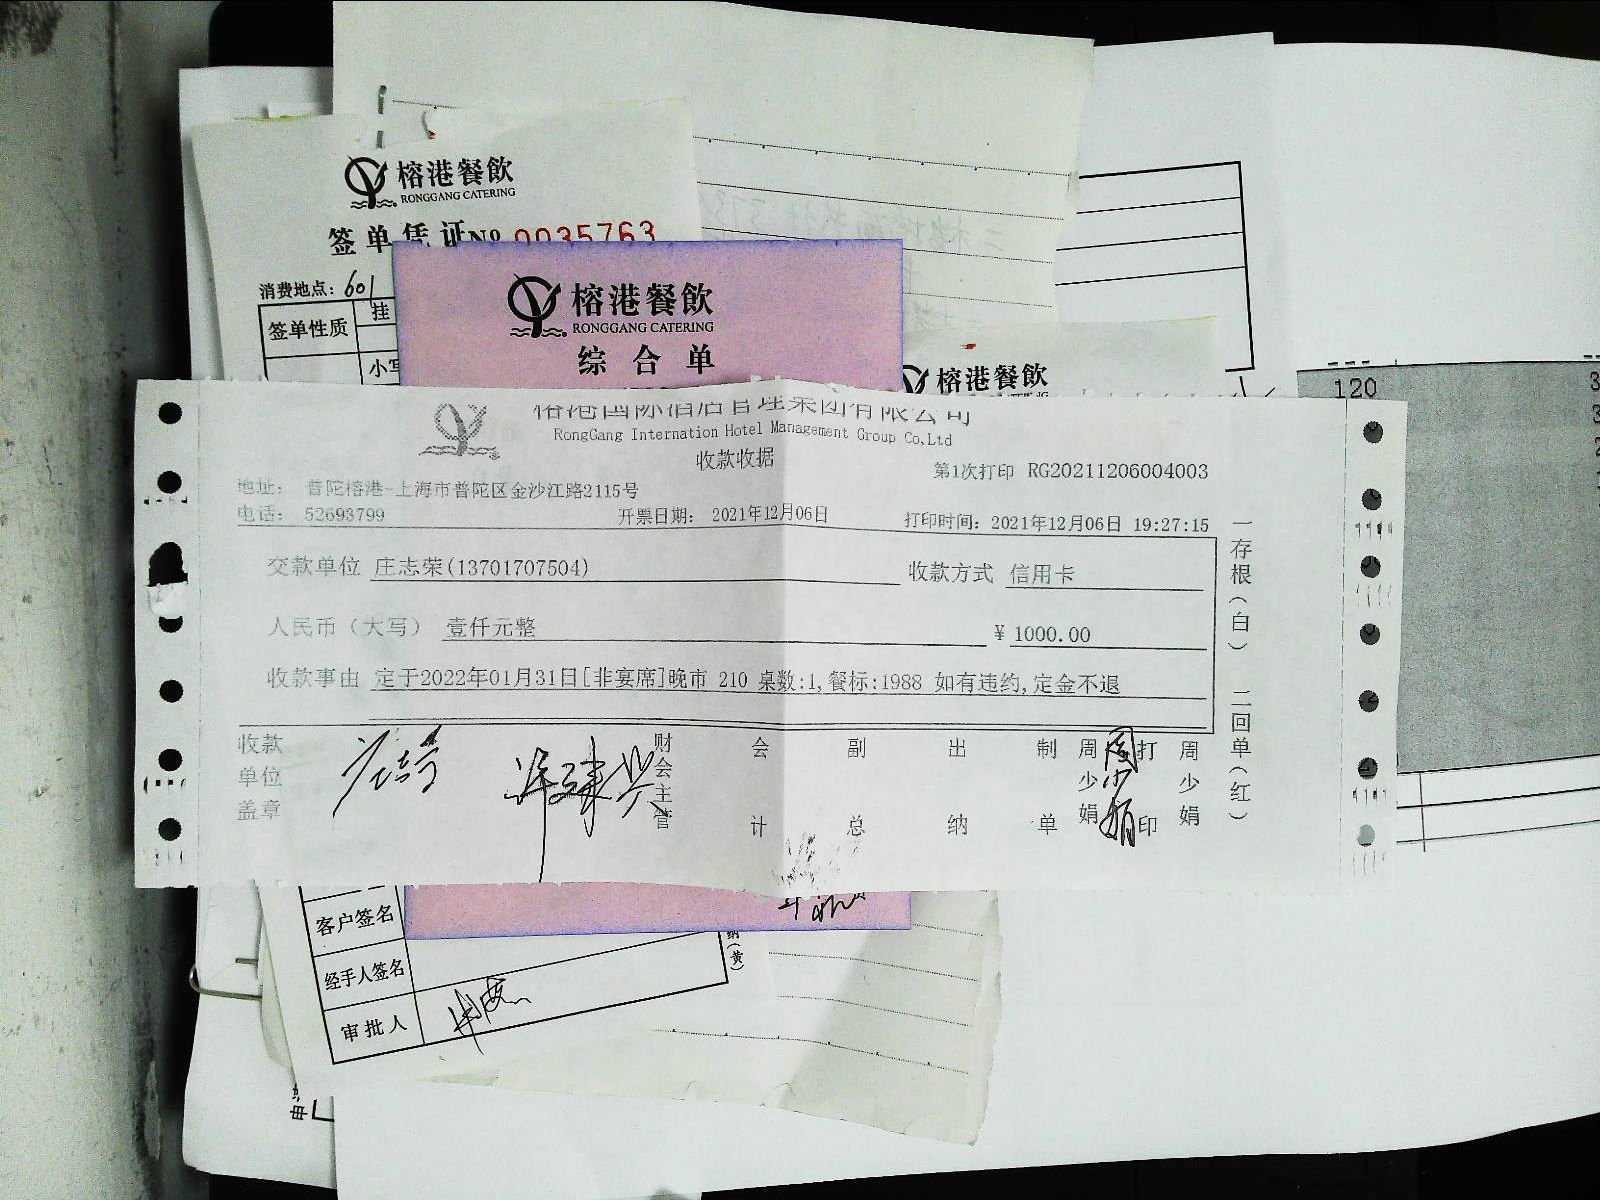 榕港餐飲
RONGGANG CATERING
签单凭证№ 0035763
消费地点：601
签单性质
挂
小写
榕港餐飲
RONGGANG CATERING
综合单
榕港餐飲
120
榕港国际酒店管理集团有限公司
RongGang Internation Hotel Management Group Co,Ltd
收款收据
第1次打印 RG20211206004003
地址： 普陀榕港-上海市普陀区金沙江路2115号
电话： 52693799
开票日期： 2021年12月06日
打印时间：2021年12月06日 19:27:15
交款单位 庄志荣(13701707504)
收款方式 信用卡
人民币（大写） 壹仟元整
￥ 1000.00
收款事由 定于2022年01月31日[非宴席]晚市 210 桌数:1,餐标:1988 如有违约,定金不退
一存根（白） 二回单（红）
收款单位盖章
财会主管
会计
副总
出纳
制单
周少娟
周少娟
打印
周少娟
客户签名
经手人签名
审批人
纳（黄）